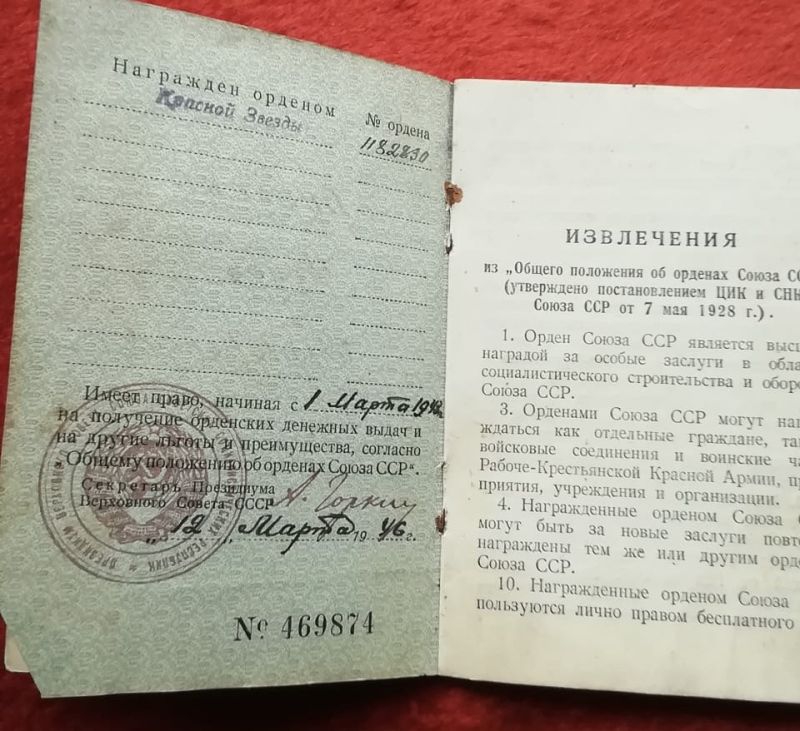 Награжден орденом
Красной Звезды
№ ордена
1182830
Имеет право, начиная с 1 Марта 1946 г.
на получение орденских денежных выдач и
на другие льготы и преимущества, согласно
„Общему положению об орденах Союза ССР“.
Секретарь Президиума
Верховного Совета СССР А. Горкин
„12„ Марта 1946 г.
№ 469874
ИЗВЛЕЧЕНИЯ
из „Общего положения об орденах Союза СС
(утверждено постановлением ЦИК и СНК
Союза ССР от 7 мая 1928 г.).
1. Орден Союза ССР является высш
наградой за особые заслуги в обла
социалистического строительства и оборо
Союза ССР.
3. Орденами Союза ССР могут наг
ждаться как отдельные граждане, та
войсковые соединения и воинские ча
Рабоче-Крестьянской Красной Армии, пр
приятия, учреждения и организации.
4. Награжденные орденом Союза С
могут быть за новые заслуги повто
награждены тем же или другим орде
Союза ССР.
10. Награжденные орденом Союза
пользуются лично правом бесплатного